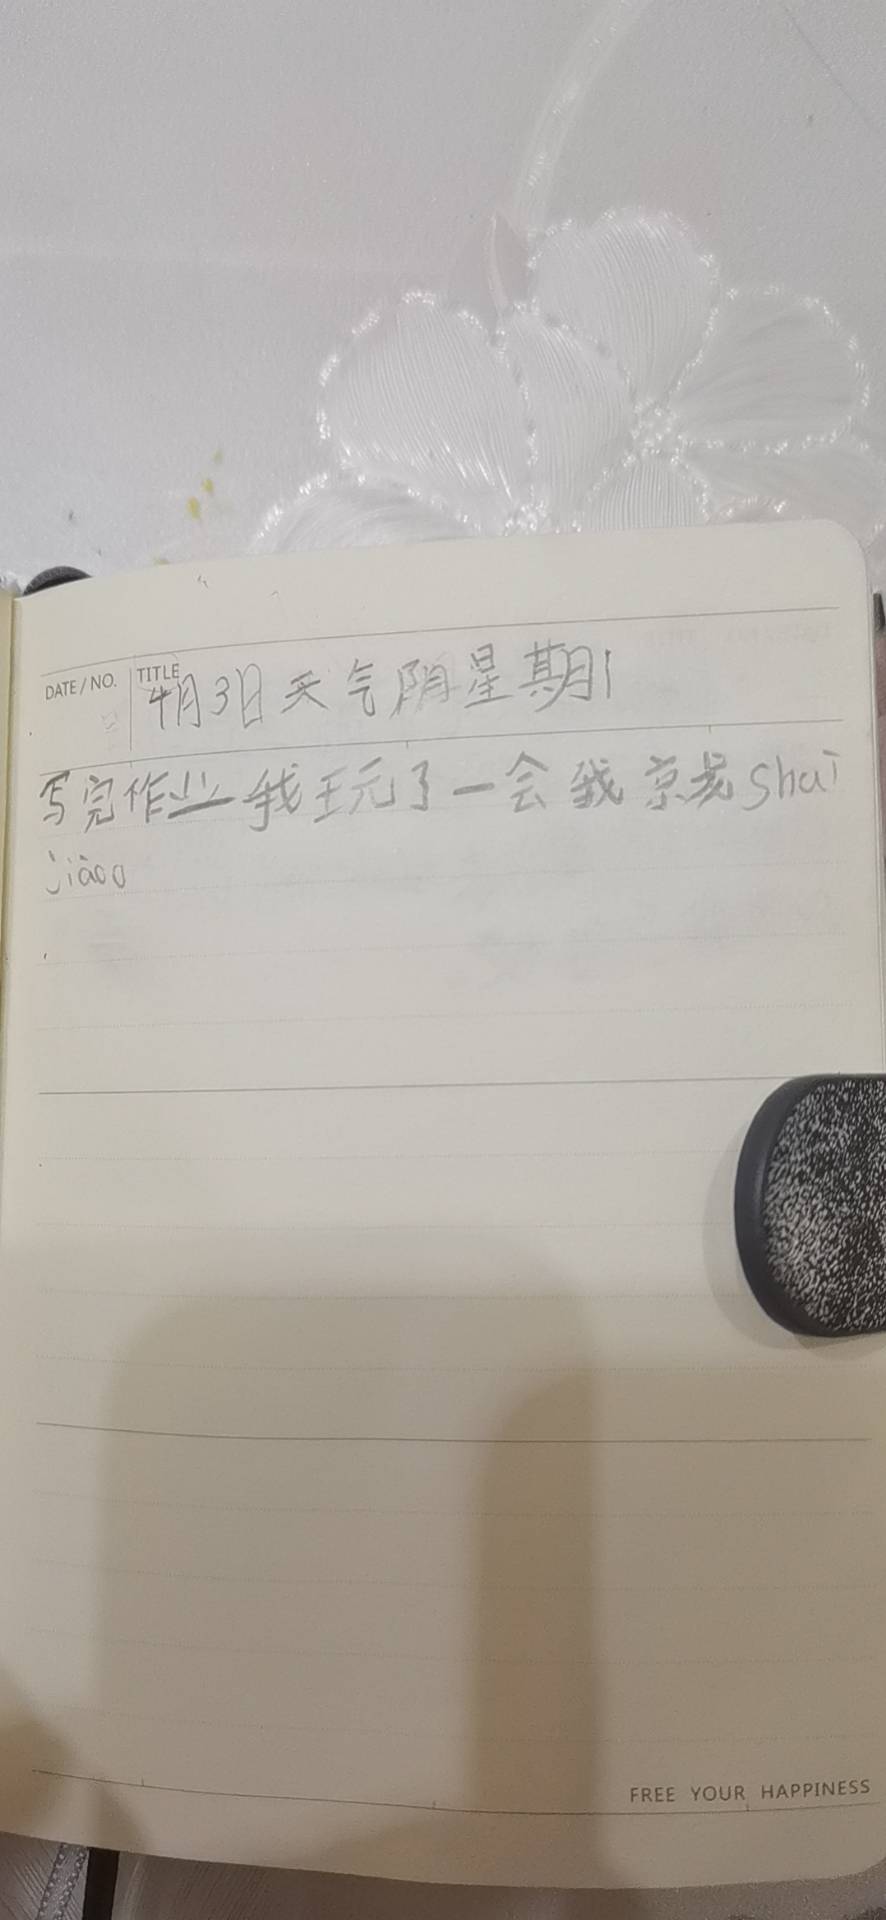 DATE / NO.
TITLE
4月3日天气阴星期1
写完作业我玩了一会我就shuì
jiào。
FREE YOUR HAPPINESS